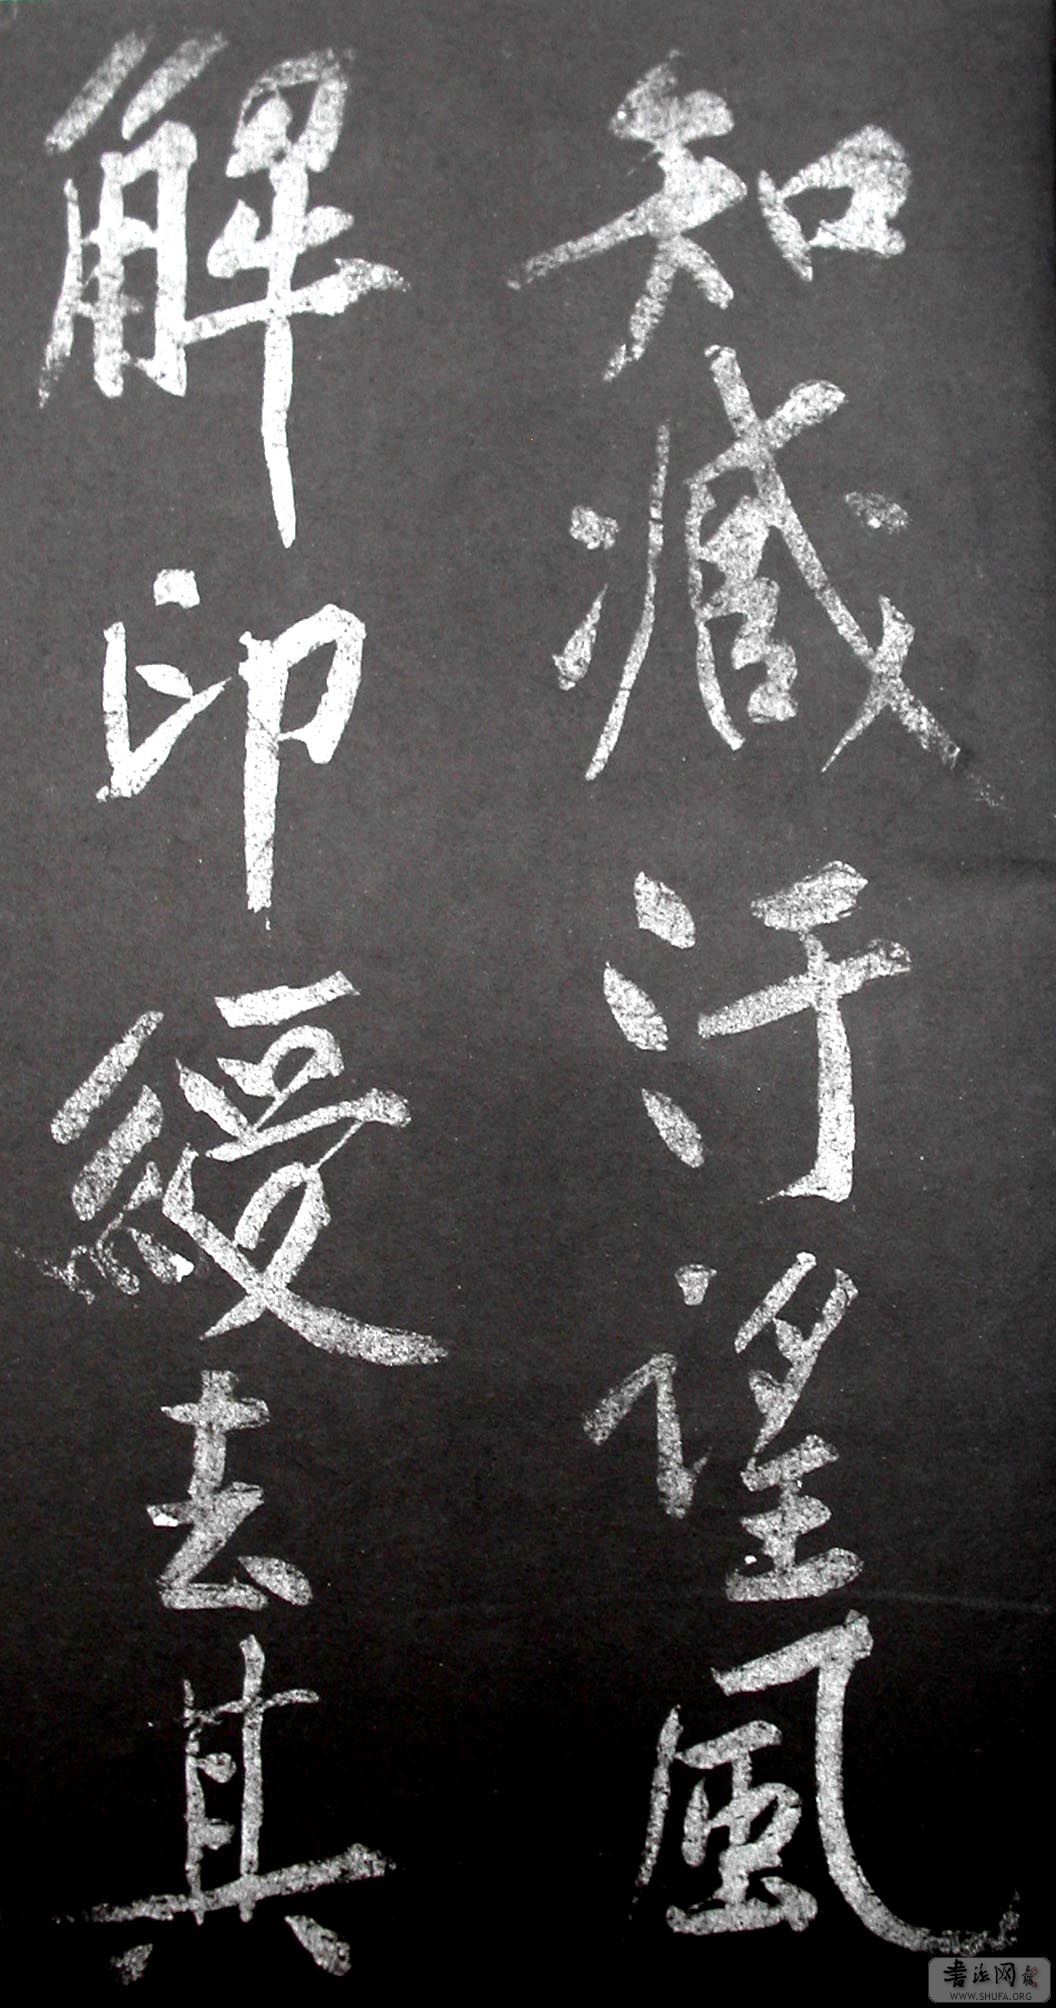 知臧汙望風
解印綬去其
書法网
WWW.SHUFA.ORG